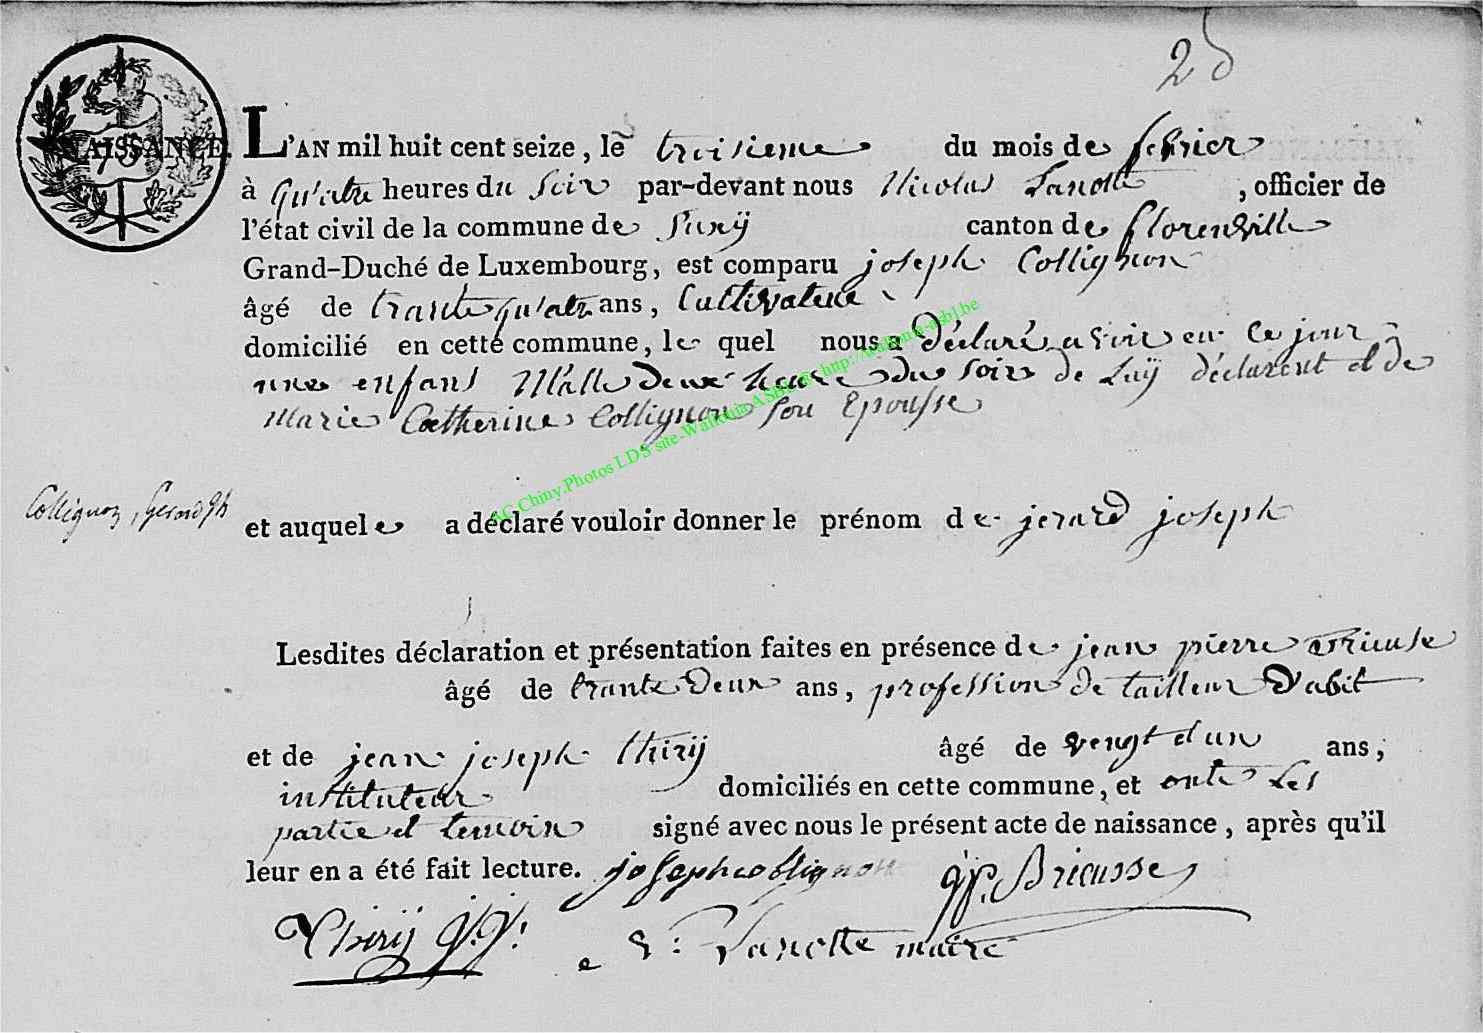 25
NAISSANCE.
75
L'AN mil huit cent seize, le troisieme du mois de fevrier
à qu'atre heures du soir par-devant nous Nicolas Lanotte, officier de
l'état civil de la commune de Suxÿ canton de florenville
Grand-Duché de Luxembourg, est comparu joseph Collignon
âgé de trante qu'atre ans, Cultivateur
domicilié en cette commune, le quel nous a déclaré avoir eu ce jour
une enfant Mâlle deux heure du soir de Luÿ déclarent et de
marie Catherine Collignon son Epousse
Collignon, Gerard Jh
et auquel a déclaré vouloir donner le prénom de jerard joseph
Lesdites déclaration et présentation faites en présence de jean pierre Brieusse
âgé de trante deux ans, profession de tailleur D'abit
et de jean joseph thirÿ âgé de vengt d'un ans,
instituteur domiciliés en cette commune, et onte Les
partie et temoin signé avec nous le présent acte de naissance, après qu'il
leur en a été fait lecture. joseph collignon jp. Brieusse
Thirÿ j. j. Lanotte maire
AC.Chiny.Photos LDS site-Wallonia ASBL @ http://wallonia-asbl.be